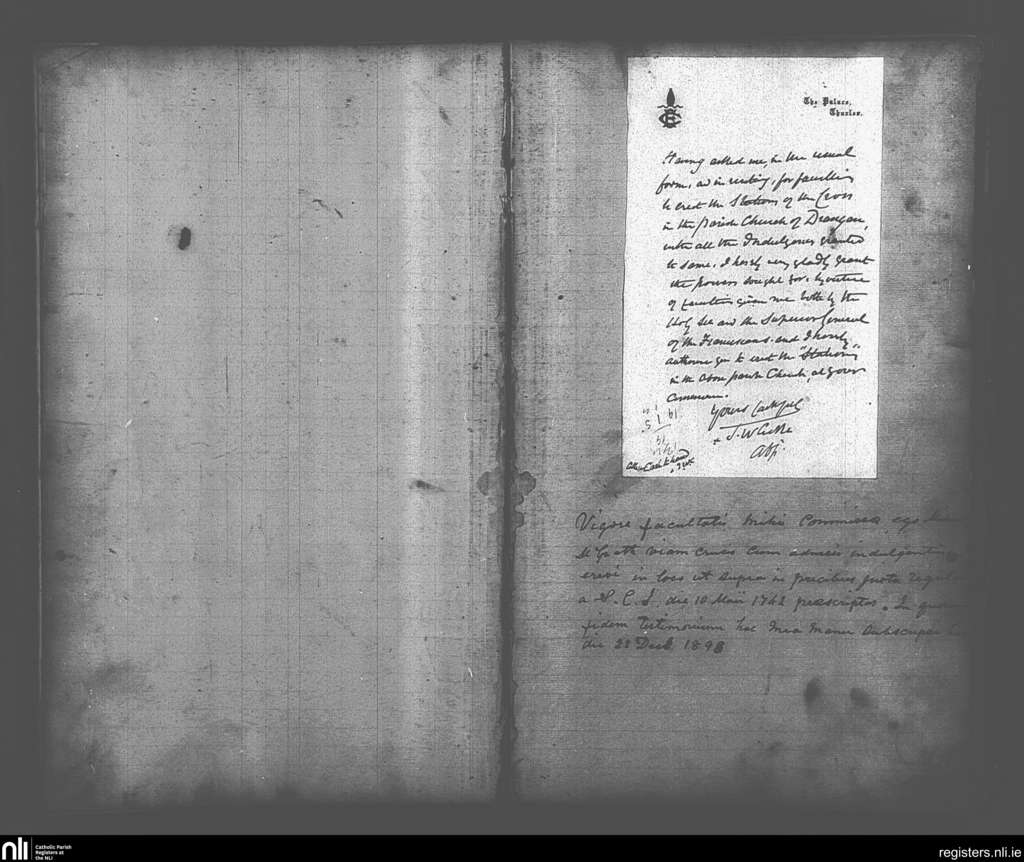 The Palace,
Thurles.
Having asked me, in the usual
form, and in writing, for faculties
to erect the Stations of the Cross
in the parish Church of Drangan,
with all the Indulgences granted
to same, I hereby very gladly grant
the powers sought for, by virtue
of faculties given me both by the
Holy See and the Superior General
of the Franciscans. and I hereby
authorise you to erect the "Stations"
in the above parish Church, at your
convenience.
Yours faithfully
+ T. W. Croke
Abp.
Vigore facultatis mihi Commissa ego
McGrath viam Crucis Cum adnexis indulgentiis
erexi in loco ut supra in precibus juxta regulas
a S. C. I. die 10 Maii 1742 prescriptas. In quorum
fidem testimonium hac mea manu subscripsi
die 22 Decb 1898
nli
Catholic Parish
Registers at
the NLI
registers.nli.ie